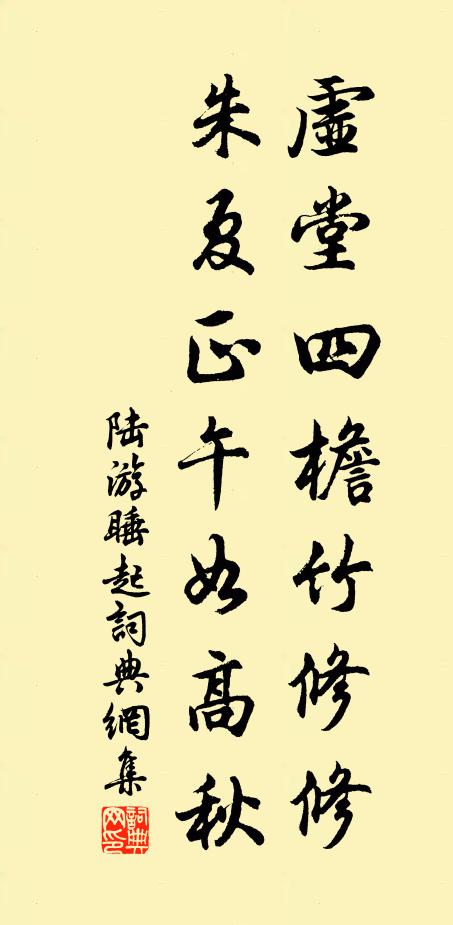 虛堂四檐竹修修
朱夏正午如高秋
陆游睡起詞典網集
詞典網印